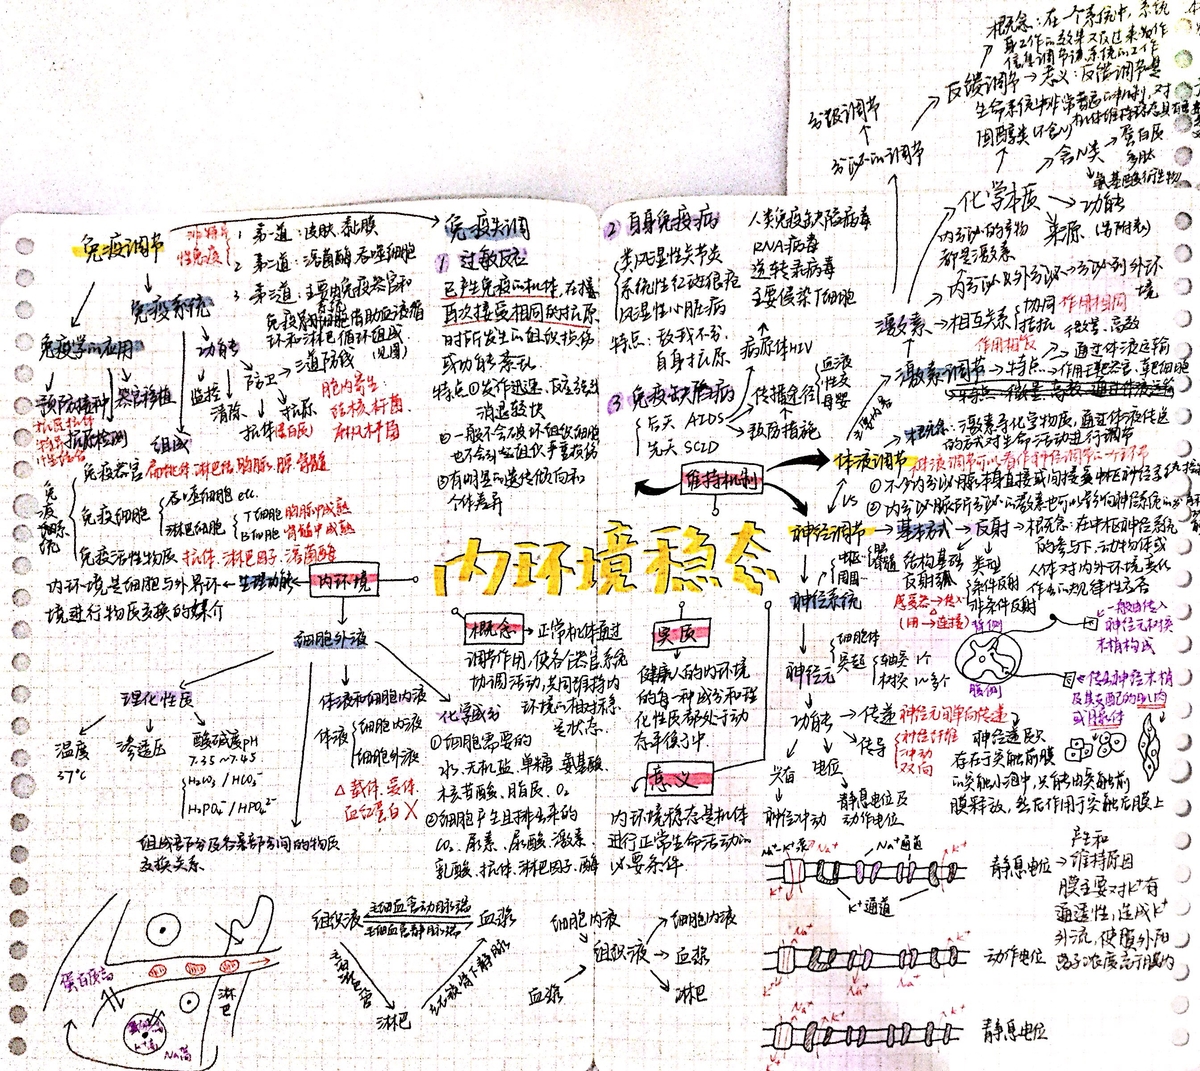 内环境稳态
免疫调节
非特异
性免疫
1 第一道：皮肤 黏膜
2 第二道：溶菌酶 吞噬细胞
3 第三道：主要由免疫器官和
免疫细胞借助血液循
环和淋巴循环组成
免疫系统
免疫学的应用
功能
防卫→三道防线
(见图)
监控
清除
预防接种
器官移植
抗原检测
抗体(蛋白质)
抗原
胞内寄生
结核杆菌
麻风杆菌
组成
免疫系统
免疫器官 扁桃体 淋巴结 胸腺 脾 骨髓
免疫细胞
吞噬细胞 etc.
淋巴细胞
T细胞 胸腺中成熟
B细胞 骨髓中成熟
免疫活性物质 抗体、淋巴因子、溶菌酶
内环境是细胞与外界环
境进行物质交换的媒介
生理功能
内环境
免疫失调
1 过敏反应
已产生免疫的机体,在接
再次接受相同的抗原
时所发生的组织损伤
或功能紊乱
特点①发作迅速、反应强烈
消退较快
②一般不会破坏组织细胞
也不会引起组织严重损伤
③有明显的遗传倾向和
个体差异
2 自身免疫病
类风湿性关节炎
系统性红斑狼疮
风湿性心脏病
特点：敌我不分,
自身抗原
3 免疫缺陷病
后天 AIDS
先天 SCID
人类免疫缺陷病毒
RNA病毒
逆转录病毒
主要侵染T细胞
病原体HIV
传播途径
血液
性交
母婴
预防措施
维持机制
细胞外液
理化性质
温度
37℃
渗透压
酸碱度pH
7.35~7.45
H₂CO₃ / HCO₃⁻
H₂PO₄⁻ / HPO₄²⁻
体液和细胞内液
体液
细胞内液
细胞外液
△ 载体、受体、
血红蛋白 X
组成各部分及各部分间的物质
交换关系
化学成分
①细胞需要的
水、无机盐、单糖、氨基酸、
核苷酸、脂质、O₂
②细胞产生且排出来的
CO₂ 尿素、尿酸、激素、
乳酸、抗体、淋巴因子、酶
概念→正常机体通过
调节作用,使各个器官,系统
协调活动,共同维持内
环境的相对稳态
是状态
实质
健康人的内环境
的每一种成分和理
化性质都处于动
态平衡中
意义
内环境稳态是机体
进行正常生命活动的
必要条件
组织液
毛细血管动脉端
毛细血管静脉端
血浆
毛细淋巴管
左右锁骨下静脉
淋巴
细胞内液
组织液
血浆
细胞内液
血浆
淋巴
蛋白质高
淋巴
K⁺高
Na⁺高
分级调节
分泌的调节
反馈调节
概念：在一个系统中,系统
身工作的效果又反过来作
信息调节该系统的工作
意义：反馈调节是
生命系统中非常普遍的机制,对
机体维持稳态具有
固醇类(不含N)
含N类
蛋白质
多肽
氨基酸衍生物
化学本质
功能
来源（另附表）
内分泌的产物
都是激素
内分泌&外分泌→分泌到外环
境
激素
相互关系
协同 作用相同
拮抗
作用相反
激素调节→特点
微量、高效
通过体液运输
作用于靶器官、靶细胞
概念：激素等化学物质,通过体液传送
的方式对生命活动进行调节
体液调节
体液调节可以看作神经调节的一个环节
①不少内分泌腺本身直接或间接受中枢神经系统
②内分泌腺所分泌的激素也可以影响神经系统
VS
神经调节→基本方式→反射→概念:在中枢神经系统
的参与下,动物体或
人体对内外环境变化
作出的规律性应答
中枢
外周
神经系统
结构基础
反射弧
感受器→传入
(用→连接)
类型
条件反射
非条件反射
背侧
腹侧
一般由传入
神经元树突
末梢构成
传出神经末梢
及其支配的肌肉
或腺体
神经元
细胞体
突起
轴突 1个
树突 1~多个
功能
传递 神经元间单向传递
传导
神经纤维
冲动
双向
神经递质
存在于突触前膜
的突触小泡中,只能由突触前
膜释放,然后作用于突触后膜上
兴奋
神经冲动
电位
静息电位及
动作电位
Na⁺-K⁺泵
Na⁺
Na⁺通道
K⁺
K⁺通道
静息电位
产生和
维持原因
膜主要对K⁺有
通透性,造成K⁺
外流,使膜外阳
离子浓度高于膜内
Na⁺
K⁺
动作电位
Na⁺
K⁺
静息电位